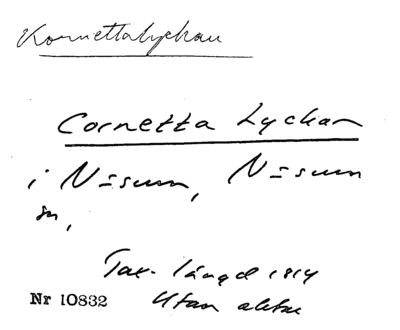 Kornettalyckan
Cornetta Lyckan
i Näsum, Näsum
sn,
Tax. längd 1814
Nr 10832 Utan akter